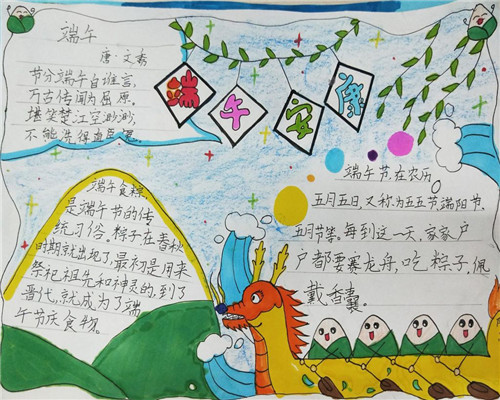 端午
唐 文秀
节分端午自谁言,
万古传闻为屈原。
堪笑楚江空渺渺,
不能洗得直臣冤。
端午安康
端午食粽,
是端午节的传
统习俗。粽子在春秋
时期就出现了,最初是用来
祭祀祖先和神灵的,到了
晋代,就成为了端
午节庆食物。
端午节,在农历
五月五日,又称为五五节,端阳节,
五月节等。每到这一天,家家户
户都要赛龙舟,吃粽子,佩
戴香囊。